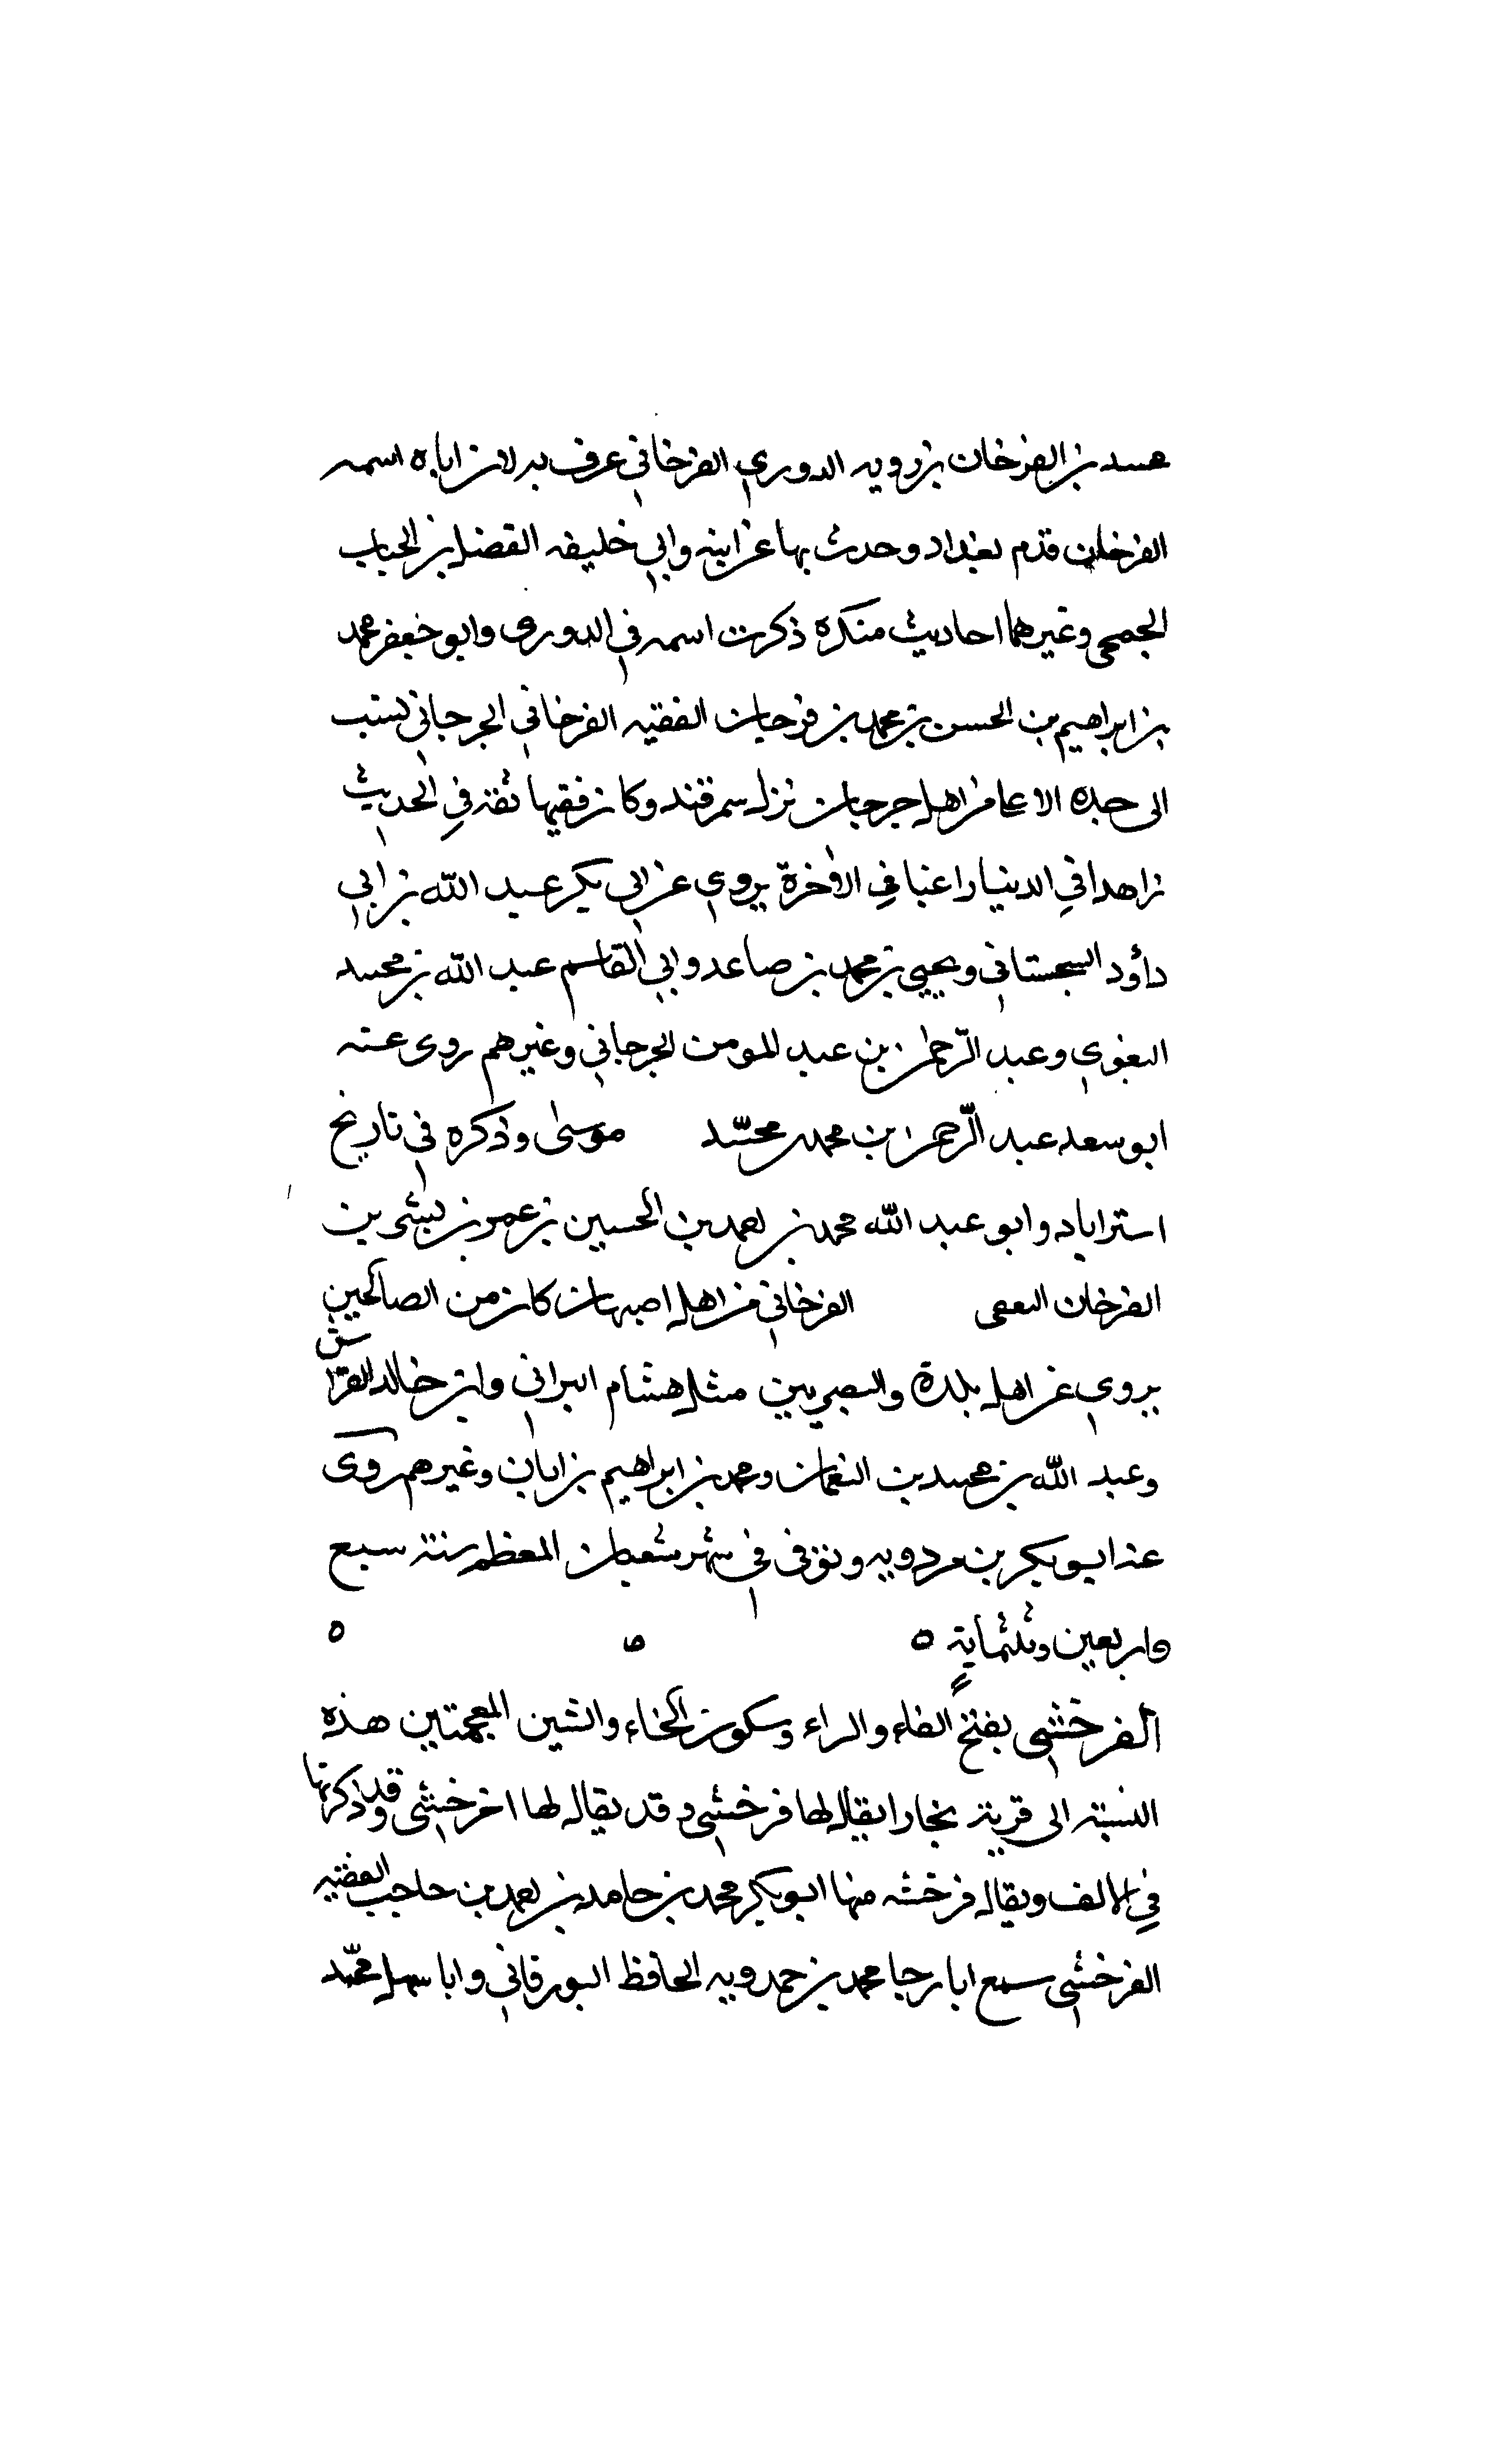 محمد بن الفرخان بن روويه الدوري الفرخاني عرف به لان اباه اسمه
الفرخان قدم بغداد وحدث بها عن ابيه وابي خليفه الفضل بن الحباب
الجمحي وغيرهما احاديث منكرة ذكرت اسمه في الدوري وابو جعفر محمد
بن ابراهيم بن الحسن بن محمد بن فرخان الفقيه الفرخاني الجرجاني نسب
الى جده الاعلى من اهل جرجان نزل سمرقند وكان فقيها ثقة في الحديث
زاهدا في الدنيا راغبا في الاخرة يروي عن ابي بكر عبد الله بن ابي
داؤد السجستاني ويحيى بن محمد بن صاعد وابي القاسم عبد الله بن محمد
البغوي وعبد الرحمن بن عبد المومن الجرجاني وغيرهم روى عنه
ابو سعد عبد الرحمن بن محمد محمد موسى وذكره في تاريخ
استراباد وابو عبد الله محمد بن احمد بن الحسين بن عمر بن بشر بن
الفرخان الفرخاني من اهل اصبهان كان من الصالحين
يروي عن اهل بلدة والبصريين مثل هشام البراني وابن خالد القرشي
وعبد الله بن محمد بن النعمان ومحمد بن ابراهيم بن ابان وغيرهم روى
عنه ابو بكر بن مردويه وتوفي في شهر شعبان المعظم سنة سبع
واربعين وثلثماية ه ه ه
الفرخشي بفتح الفاء والراء وسكون الخاء والشين المعجمتين هذه
النسبة الى قرية بخارا يقال لها فرخشي وقد يقال لها افرخشي وقد ذكرتها
في الالف ويقال فرخشه منها ابو بكر محمد بن حامد بن احمد بن حاجب الفقيه
الفرخشي سمع ابا رجا محمد بن حمدويه الحافظ البورقاني وابا سهل محمد